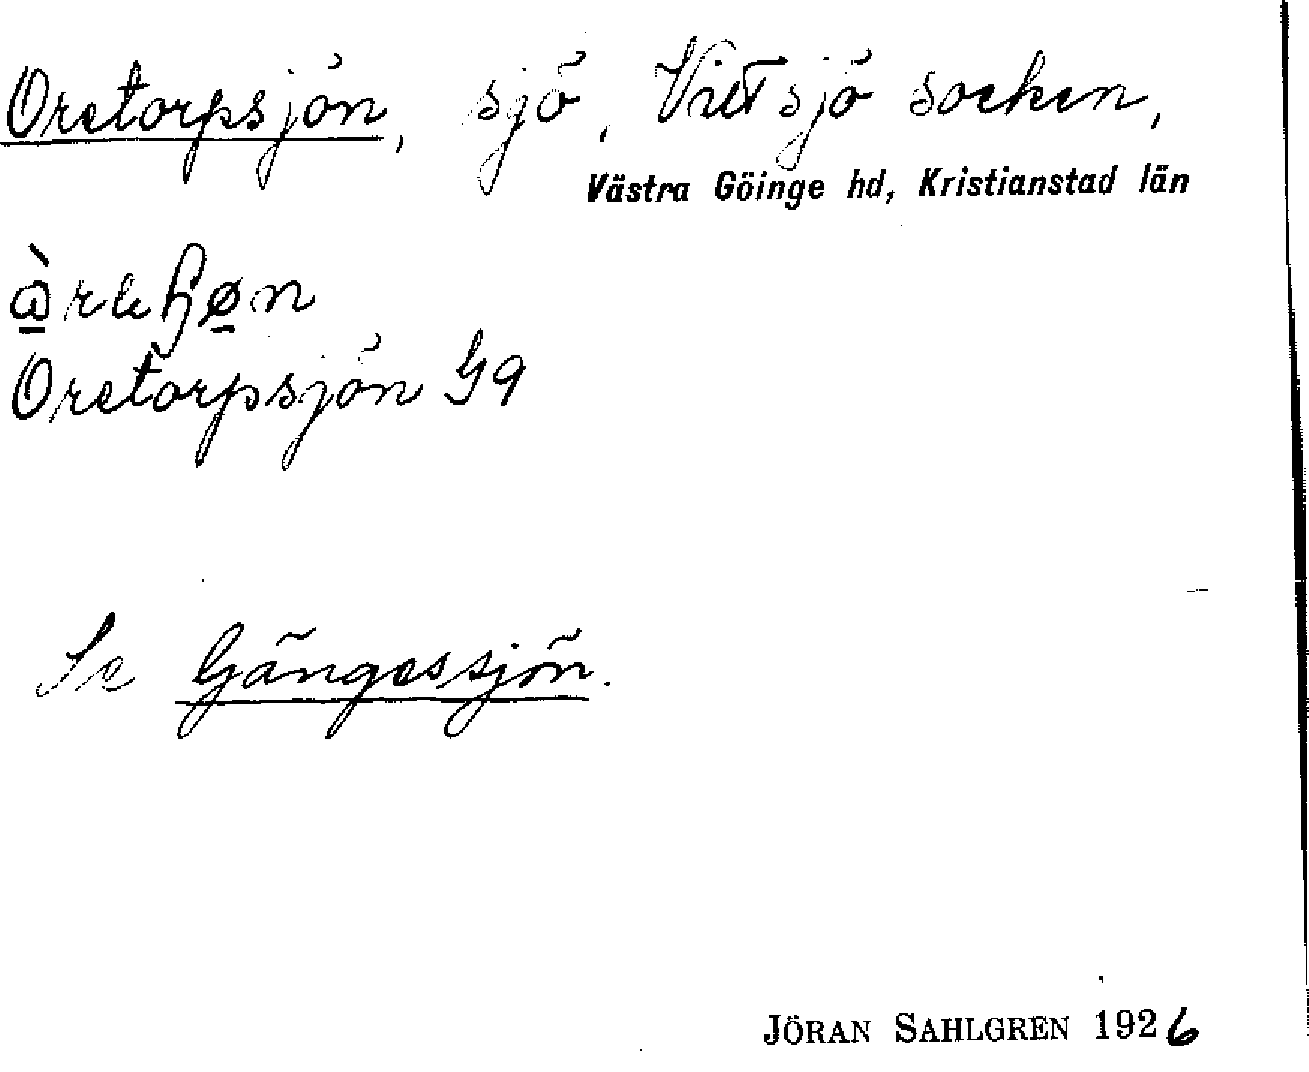 Oretorpsjön, sjö, Vittsjö socken,
Västra Göinge hd, Kristianstad län
Oretorpsjön G9
Se Gängessjön.
JÖRAN SAHLGREN 1926